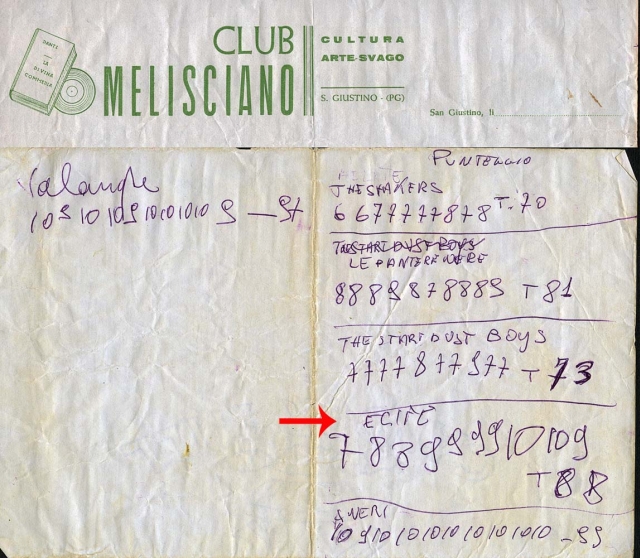 DANTE
LA
DIVINA
COMMEDIA
CLUB
MELISCIANO
CULTURA
ARTE-SVAGO
S. GIUSTINO - (PG)
San Giustino, lì
Valanghe
10 9 10 10 9 10 10 10 10 9 — 97
PUNTEGGIO
THE SHAKERS
6 6 7 7 7 7 7 8 7 8 T. 70
THE STARDUST BOYS
LE PANTERE NERE
8 8 8 9 8 7 8 8 8 9 T 81
THE STARDUST BOYS
7 7 7 7 8 7 7 9 7 7 T 73
ELITE
7 8 8 9 9 9 9 10 10 9
T 88
I NERI
10 9 10 10 10 10 10 10 10 10 - 99